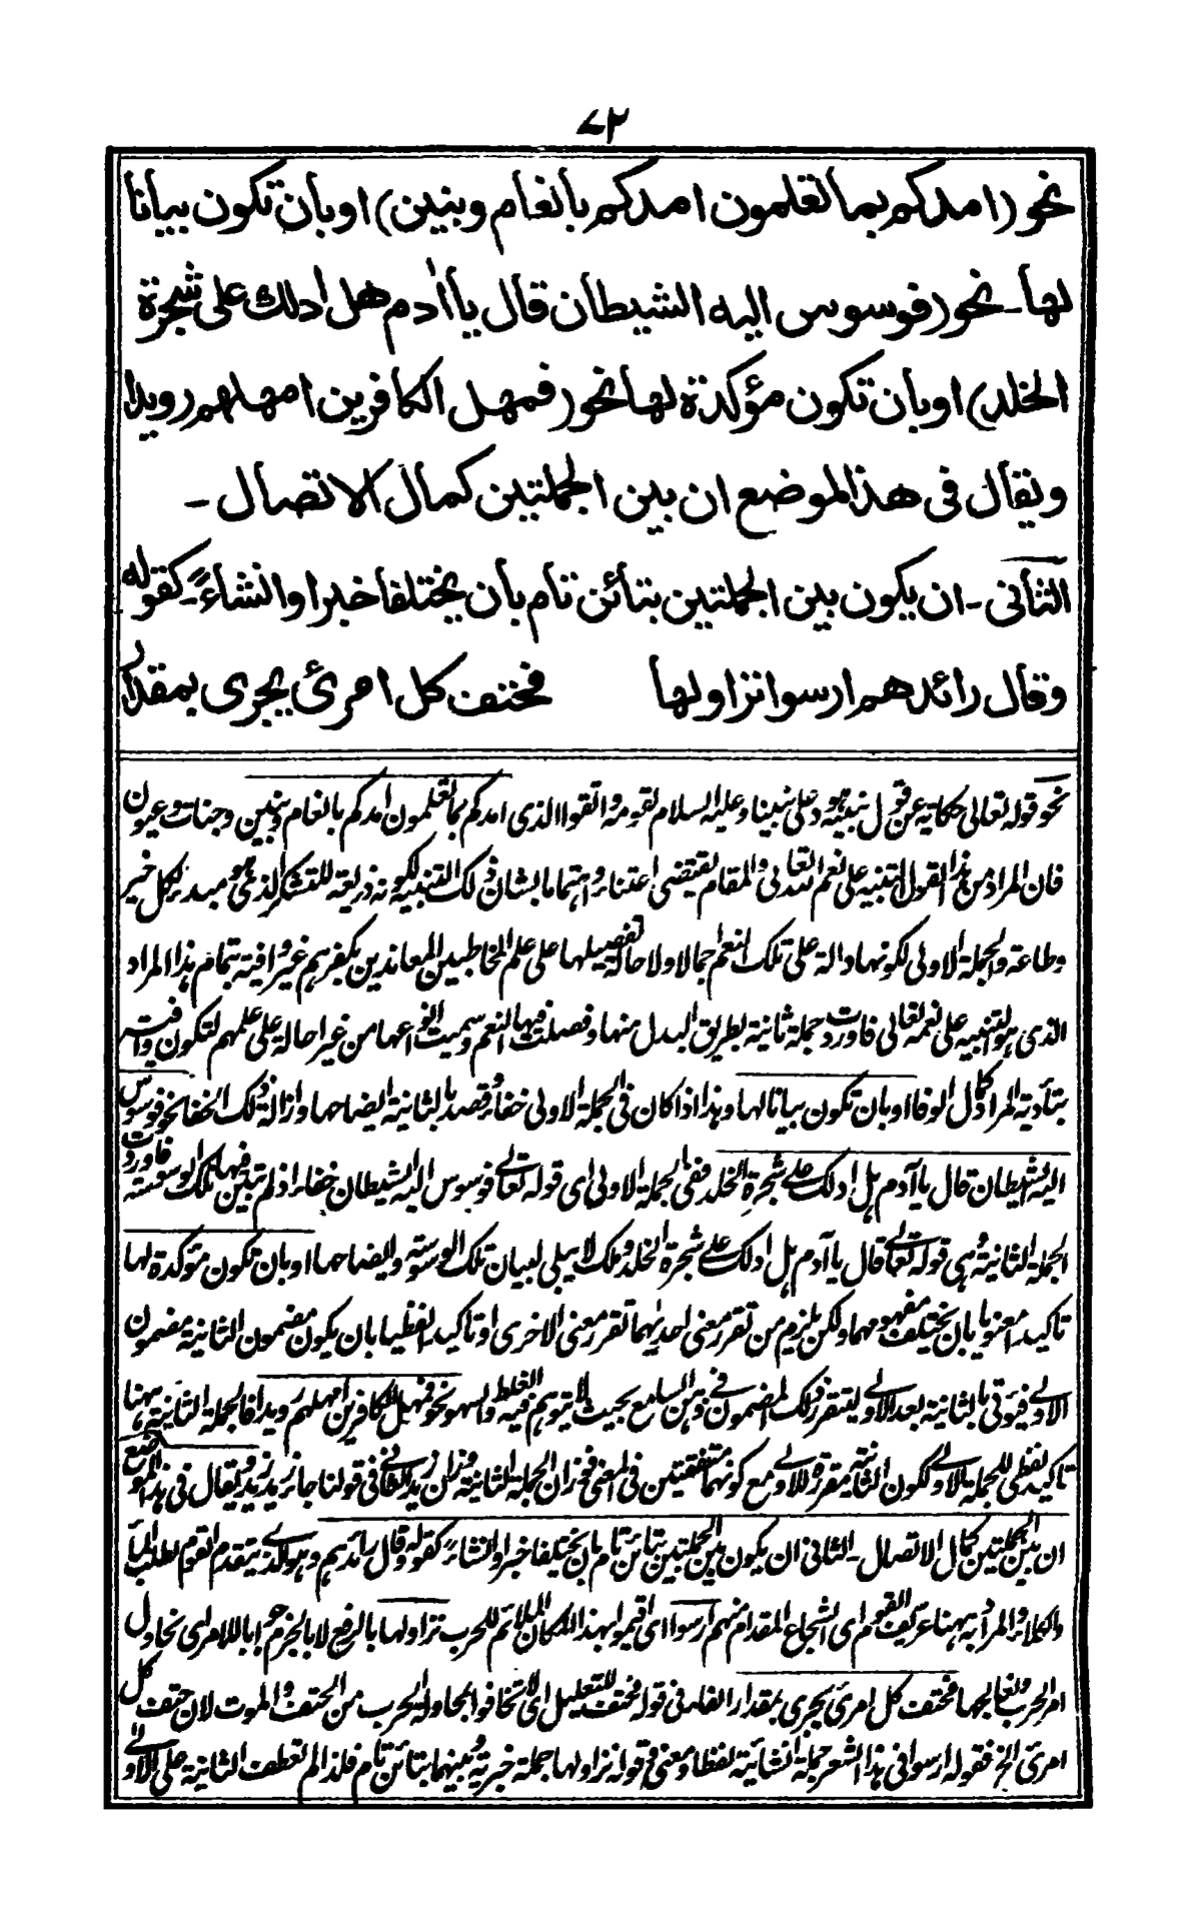 ٧٢
نحو (امدكم بما تعلمون امدكم بأنعام وبنين) او بان تكون بيانا
لها ـ نحو (فوسوس اليه الشيطان قال يا أدم هل ادلك على شجرة
الخلد) او بان تكون مؤكدة لها نحو (فمهل الكافرين امهلهم رويدا
ويقال فى هذا الموضع ان بين الجملتين كمال الاتصال ـ
الثانى ـ ان يكون بين الجملتين بتائن تام بان يختلفا خبرا وانشاءً ـ كقوله
وقال رائدهم ارسوا نزاولها فحتف كل امرئ يجرى بمقدار
نحو قوله تعالى حكاية عن قول نبيه هود على نبينا وعليه السلام لقومه واتقوا الذى امدكم بما تعلمون امدكم بانعام وبنين وجنات وعيون
فان المراد من هذا القول التنبيه على نعم الله تعالى والمقام يقتضى اعتناء واهتماما بالشان ذلك التنبيه لكونه ذريعة للتشكر الذى هو مبدء لكل خير
وطاعة والجملة الاولى لكونها دالة على تلك النعم اجمالا ولا حالة تفصيلها على علم المخاطبين المعاندين بكفرهم غير وافية بتمام هذا المراد
الذى هو التنبيه على نعمه تعالى فاوردت جملة ثانية بطريق البدل منها وفصلت فيها النعم وسميت انواعها من غير احالة على علمهم لتكون وافية
بتأدية المراد كل الوفا او بان تكون بيانا لها وهذا اذا كان فى الجملة الاولى خفاء وقصد بالثانية ايضاحها وازالة ذلك الخفا نحو فوسوس
اليه الشيطان قال يا آدم هل ادلك على شجرة الخلد ففى الجملة الاولى اى قوله تعالى فوسوس اليه الشيطان خفاء اذ لم تبين فيها تلك الوسوسة فاوردت
الجملة الثانية وهى قوله تعالى قال يا آدم هل ادلك على شجرة الخلد وملك لا يبلى لبيان تلك الوسوسة وايضاحها او بان تكون مؤكدة لها
تاكيدا معنويا بان يختلف مفهومهما ولكن يلزم من تقرر معنى احديهما تقرر معنى الاخرى او تاكيدا لفظيا بان يكون مضمون الثانية مضمون
الاولى فيؤتى بالثانية بعد الاولى ليتقرر ذلك المضمون فى ذهن السامع بحيث لا يتوهم فيه الغلط والسهو نحو فمهل الكافرين امهلهم رويدا فالجملة الثانية ههنا
تاكيد لفظى للجملة الاولى لكون الثانية مقررة للاولى مع كونهما متفقيتين فى المعنى فوزان الجملة الثانية وزان زيد الثانى فى قولنا جاء زيد زيد ويقال فى هذا الموضع
ان بين الجملتين كمال الاتصال ـ الثانى ان يكون بين الجملتين بتائن تام بان يختلفا خبرا وانشاءً كقوله وقال رائدهم وهو الذى يتقدم القوم لطلب الماء
والكلاء والمراد به ههنا عريف القوم اى الشجاع المقدام منهم ارسوا اى اقيموا بهذا المكان الملائم للحرب نزاولها بالرفع لا بالجزم جوابا للامر اى نحاول
امر الحرب ونعالجها فحتف كل امرئ يجرى بمقدار الفاء فى قوله فحتف للتعليل اى لا تخافوا بمحاولة الحرب من الحتف والموت لان حتف كل
امرئ الخ فقوله ارسوا فى هذا الشعر جملة انشائية لفظا ومعنى وقوله نزاولها جملة خبرية وبينهما بتائن تام فلذا لم تعطف الثانية على الاولى